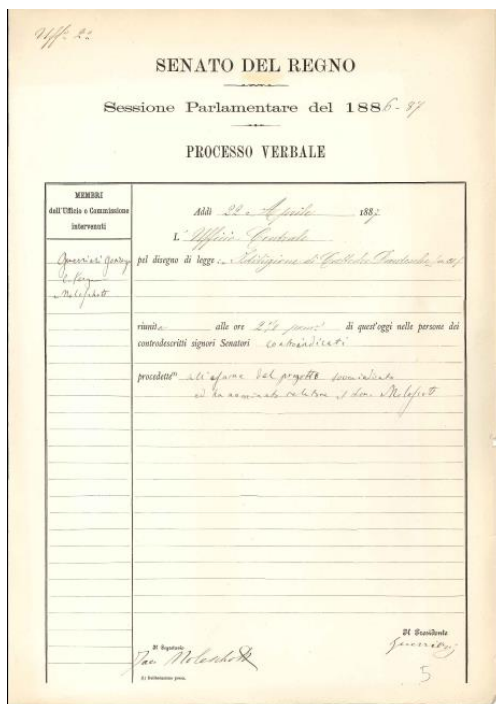 Uff. 2º
SENATO DEL REGNO
Sessione Parlamentare del 1886-87
PROCESSO VERBALE
MEMBRI
dell'Ufficio o Commissione
intervenuti
Guerrieri Gonzaga
Moleschott
Addì 22 Aprile 1887
L' Ufficio Centrale
pel disegno di legge: Istituzione di Cattedre Dantesche
riunito alle ore 2 pom. di quest'oggi nelle persone dei
controdescritti signori Senatori contraindicati
procedette (1) all'esame del progetto summindicato
ed ha nominato relatore il Sen. Moleschott
Il Segretario
Jac. Moleschott
Il Presidente
Guerrieri
(1) Deliberazione presa.
5